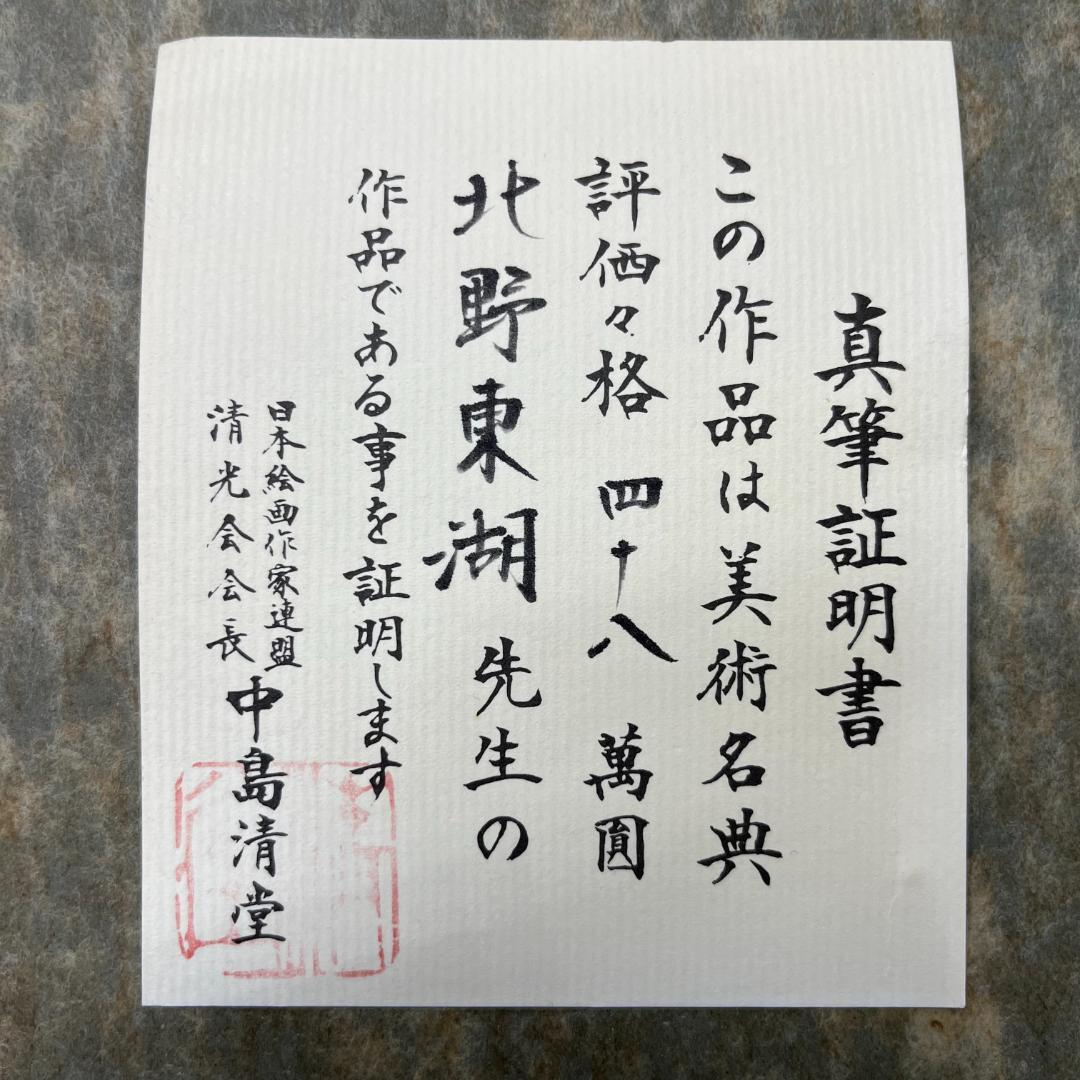 真筆証明書
この作品は美術名典
評価々格 四十八 萬圓
北野東湖 先生の
作品である事を証明します
日本絵画作家連盟
清光会会長
中島清堂